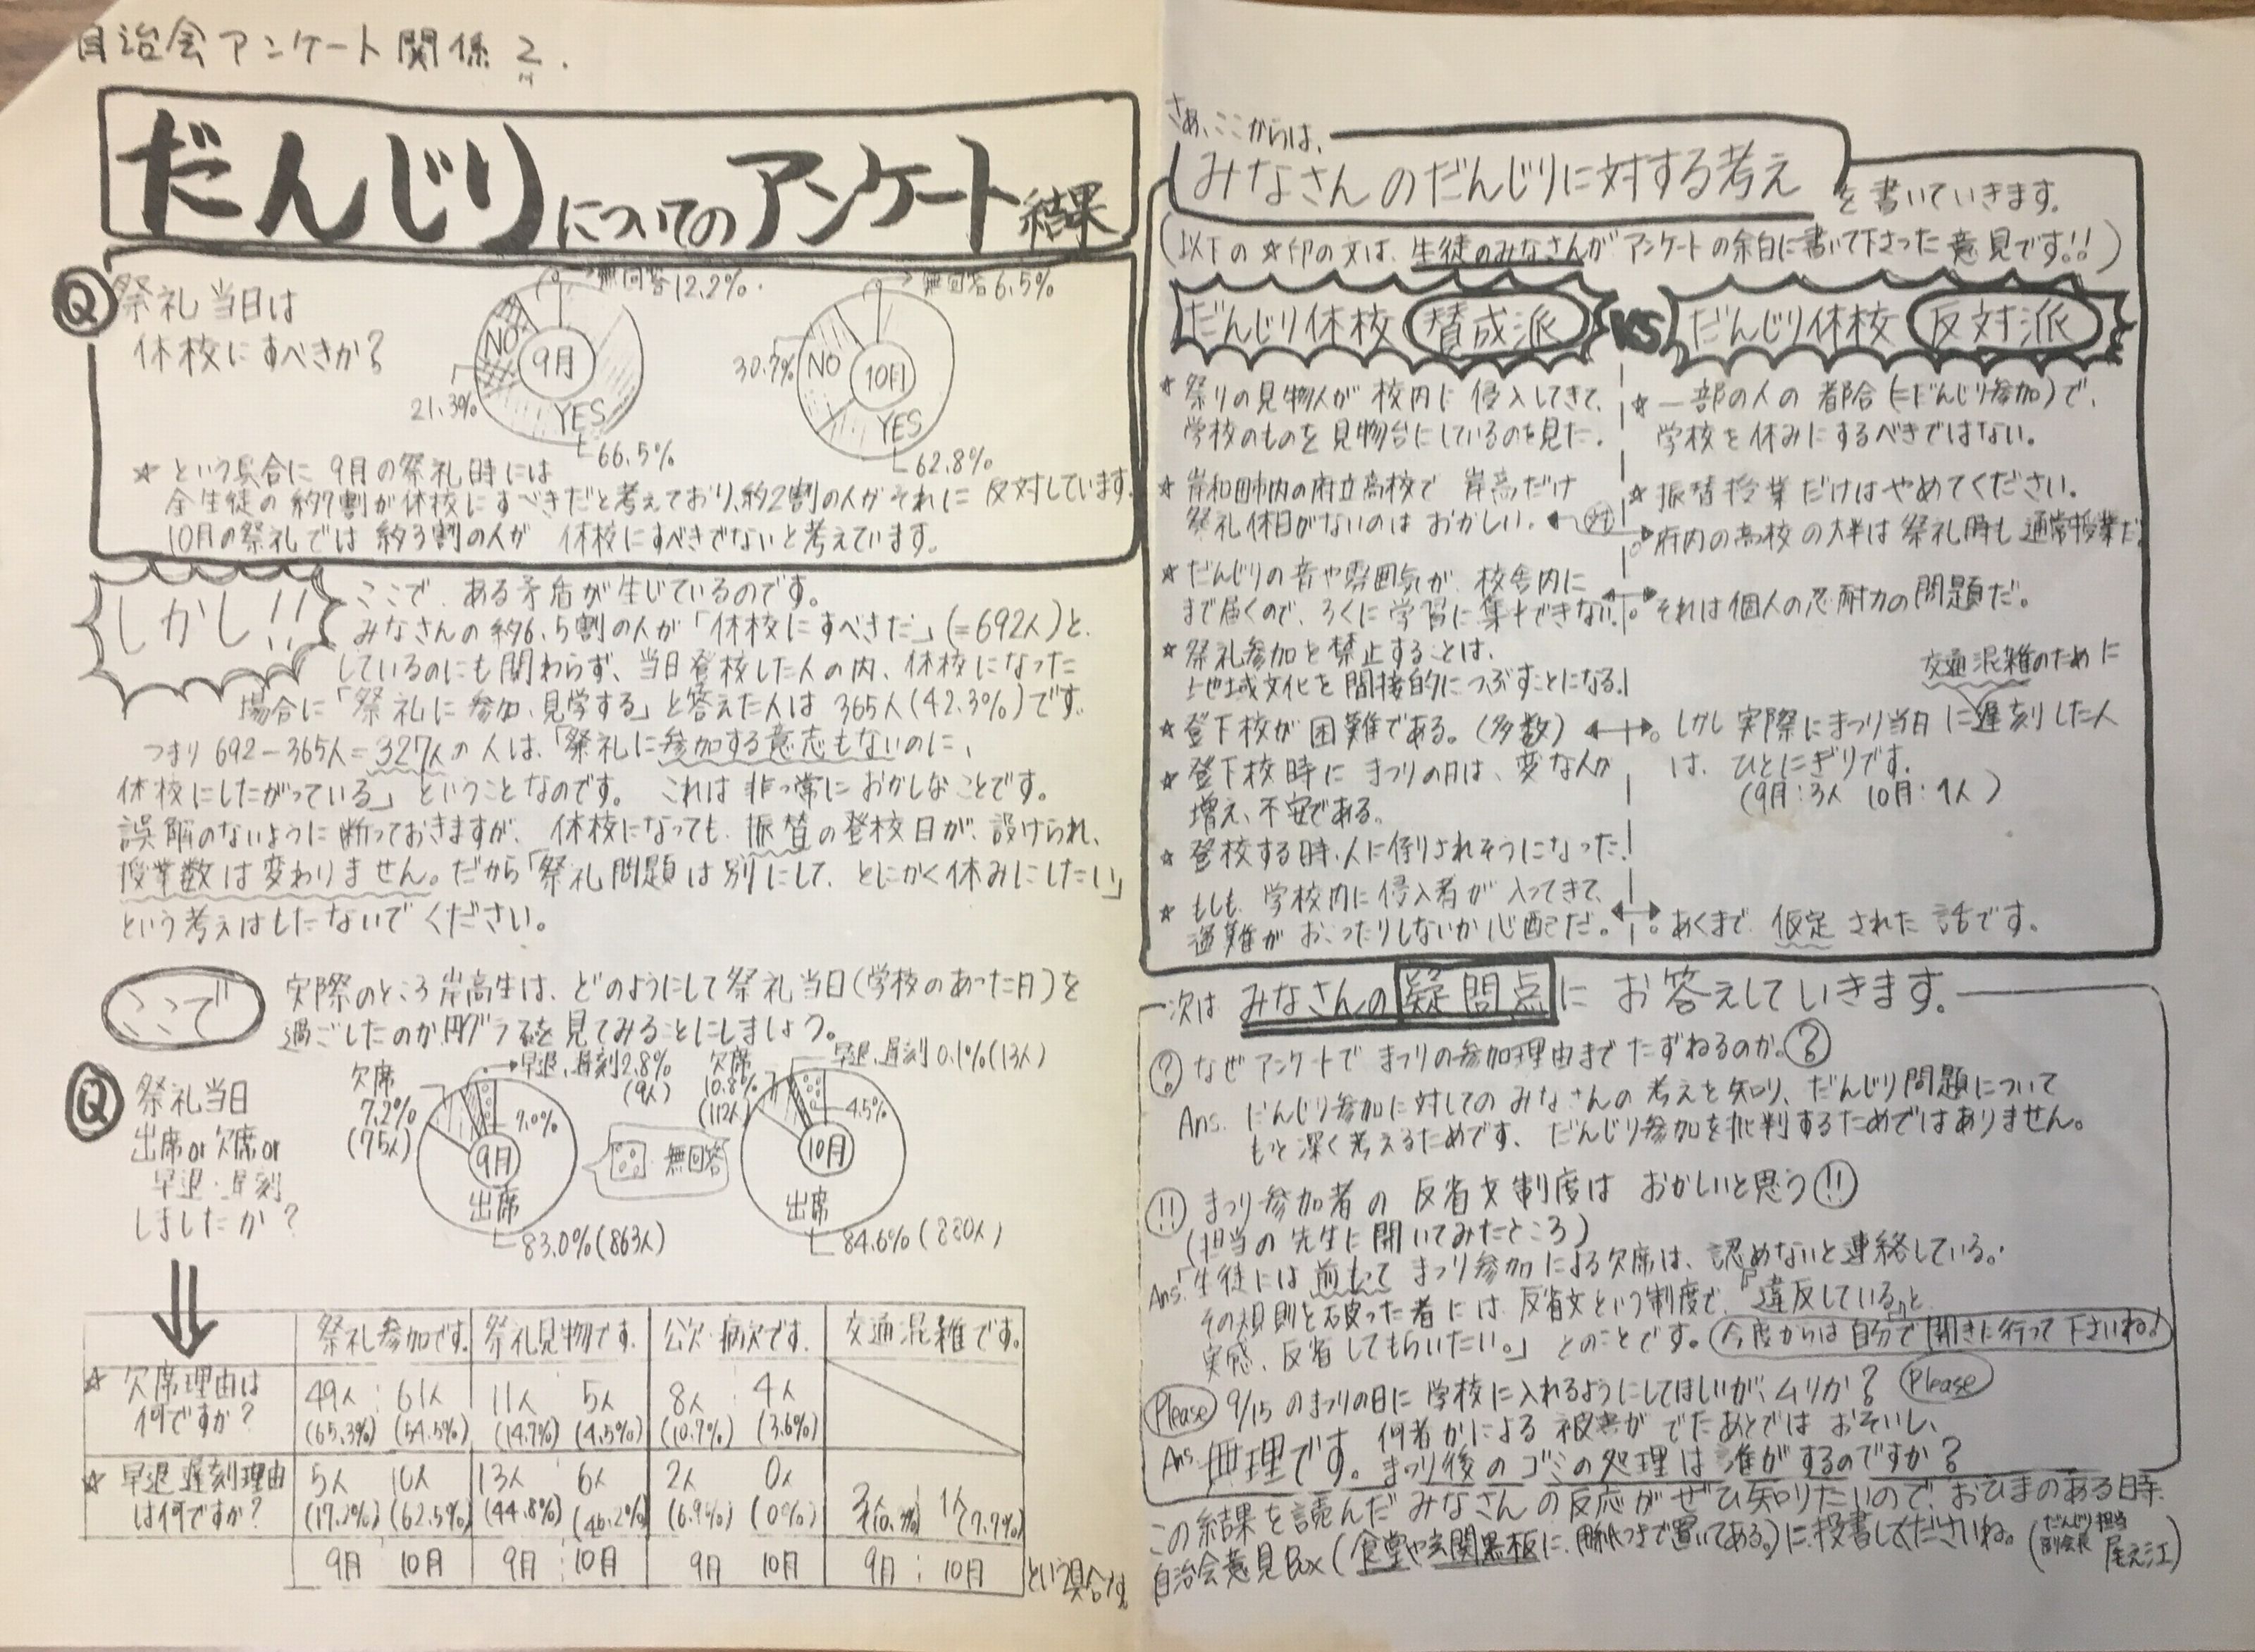 自治会アンケート関係 2.
だんじりについてのアンケート結果
Q 祭礼当日は
休校にすべきか?
無回答12.2%
NO
9月
YES
21.3%
66.5%
無回答6.5%
30.7%
NO
10月
YES
62.8%
☆ という具合に 9月の祭礼時には
全生徒の約7割が休校にすべきだと考えており、約2割の人がそれに反対しています。
10月の祭礼では約3割の人が 休校にすべきでないと考えています。
しかし!!
ここで、ある矛盾が生じているのです。
みなさんの約6.5割の人が「休校にすべきだ」(=692人)と、
しているのにも関わらず、当日登校した人の内、休校になった
場合に「祭礼に参加、見学する」と答えた人は 365人(42.3%)です。
つまり 692-365人=327人の人は、「祭礼に参加する意志もないのに、
休校にしたがっている」ということなのです。これは非常におかしなことです。
誤解のないように断っておきますが、休校になっても、振替の登校日が、設けられ、
授業数は変わりません。だから「祭礼問題は別にして、とにかく休みにしたい」
という考えはしたないでください。
ここで
実際のところ岸高生は、どのようにして祭礼当日(学校のあった日)を
過ごしたのか円グラフを見てみることにしましょう。
Q 祭礼当日
出席or欠席or
早退・遅刻
しましたか?
欠席
7.2%
(75人)
早退、遅刻2.8%
(9人)
7.0%
9月
出席
83.0%(863人)
無回答
欠席
10.8%
(112人)
早退、遅刻0.1%(13人)
4.5%
10月
出席
84.6%(880人)
祭礼参加です。 祭礼見物です。 公欠・病欠です。 交通混雑です。
☆ 欠席理由は
何ですか?
49人 61人 11人 5人 8人 4人
(65.3%) (54.5%) (14.7%) (4.5%) (10.7%) (3.6%)
☆ 早退 遅刻理由
は何ですか?
5人 10人 13人 6人 2人 0人 3人 1人
(17.2%) (62.5%) (44.8%) (46.2%) (6.9%) (0%) (7.7%)
9月 10月 9月 10月 9月 10月 9月 10月
という具合です。
さあ、ここからは、
みなさんのだんじりに対する考え
を書いていきます。
(以下の☆印の文は、生徒のみなさんがアンケートの余白に書いて下さった意見です!!)
だんじり休校 賛成派 VS だんじり休校 反対派
☆ 祭りの見物人が校内に侵入してきて、
学校のものを見物台にしているのを見た。
☆ 岸和田市内の府立高校で 岸高だけ
祭礼休日がないのはおかしい。
☆ だんじりの音や雰囲気が、校舎内に
まで届くので、ろくに学習に集中できない。
☆ 祭礼参加を禁止することは、
地域文化を間接的につぶすことになる。
☆ 登下校が困難である。(多数)
☆ 登下校時に まつりの日は、変な人が
増え、不安である。
☆ 登校する時、人に倒されそうになった!
☆ もしも、学校内に侵入者が入ってきて、
盗難がおこったりしないか心配だ。
☆ 一部の人の都合(=だんじり参加)で、
学校を休みにするべきではない。
☆ 振替授業だけはやめてください。
。府内の高校の大半は祭礼時も通常授業だ。
。それは個人の忍耐力の問題だ。
交通混雑のために
。しかし実際にまつり当日に遅刻した人
は、ひとにぎりです。
(9月:3人 10月:1人)
。あくまで 仮定 された話です。
次は みなさんの疑問点に お答えしていきます。
? なぜアンケートで まつりの参加理由までたずねるのか。?
Ans. だんじり参加に対してのみなさんの考えを知り、だんじり問題について
もっと深く考えるためです、だんじり参加を批判するためではありません。
!! まつり参加者の反省文制度は おかしいと思う !!
(担当の先生に聞いてみたところ)
Ans.「生徒には前もって まつり参加による欠席は、認めないと連絡している。
その規則を破った者には、反省文という制度で、『違反している』と
実感、反省してもらいたい。」とのことです。今度からは自分で聞きに行って下さいね!
Please 9/15のまつりの日に学校に入れるようにしてほしいが、ムリか? Please
Ans. 無理です。何者かによる被害がでたあとではおそいし、
まつり後のゴミの処理は誰がするのですか?
この結果を読んだみなさんの反応がぜひ知りたいので、おひまのある時、
自治会意見Box(食堂や玄関黒板に、用紙つきで置いてある。)に投書してくださいね。
(だんじり担当
副会長 尾之江)